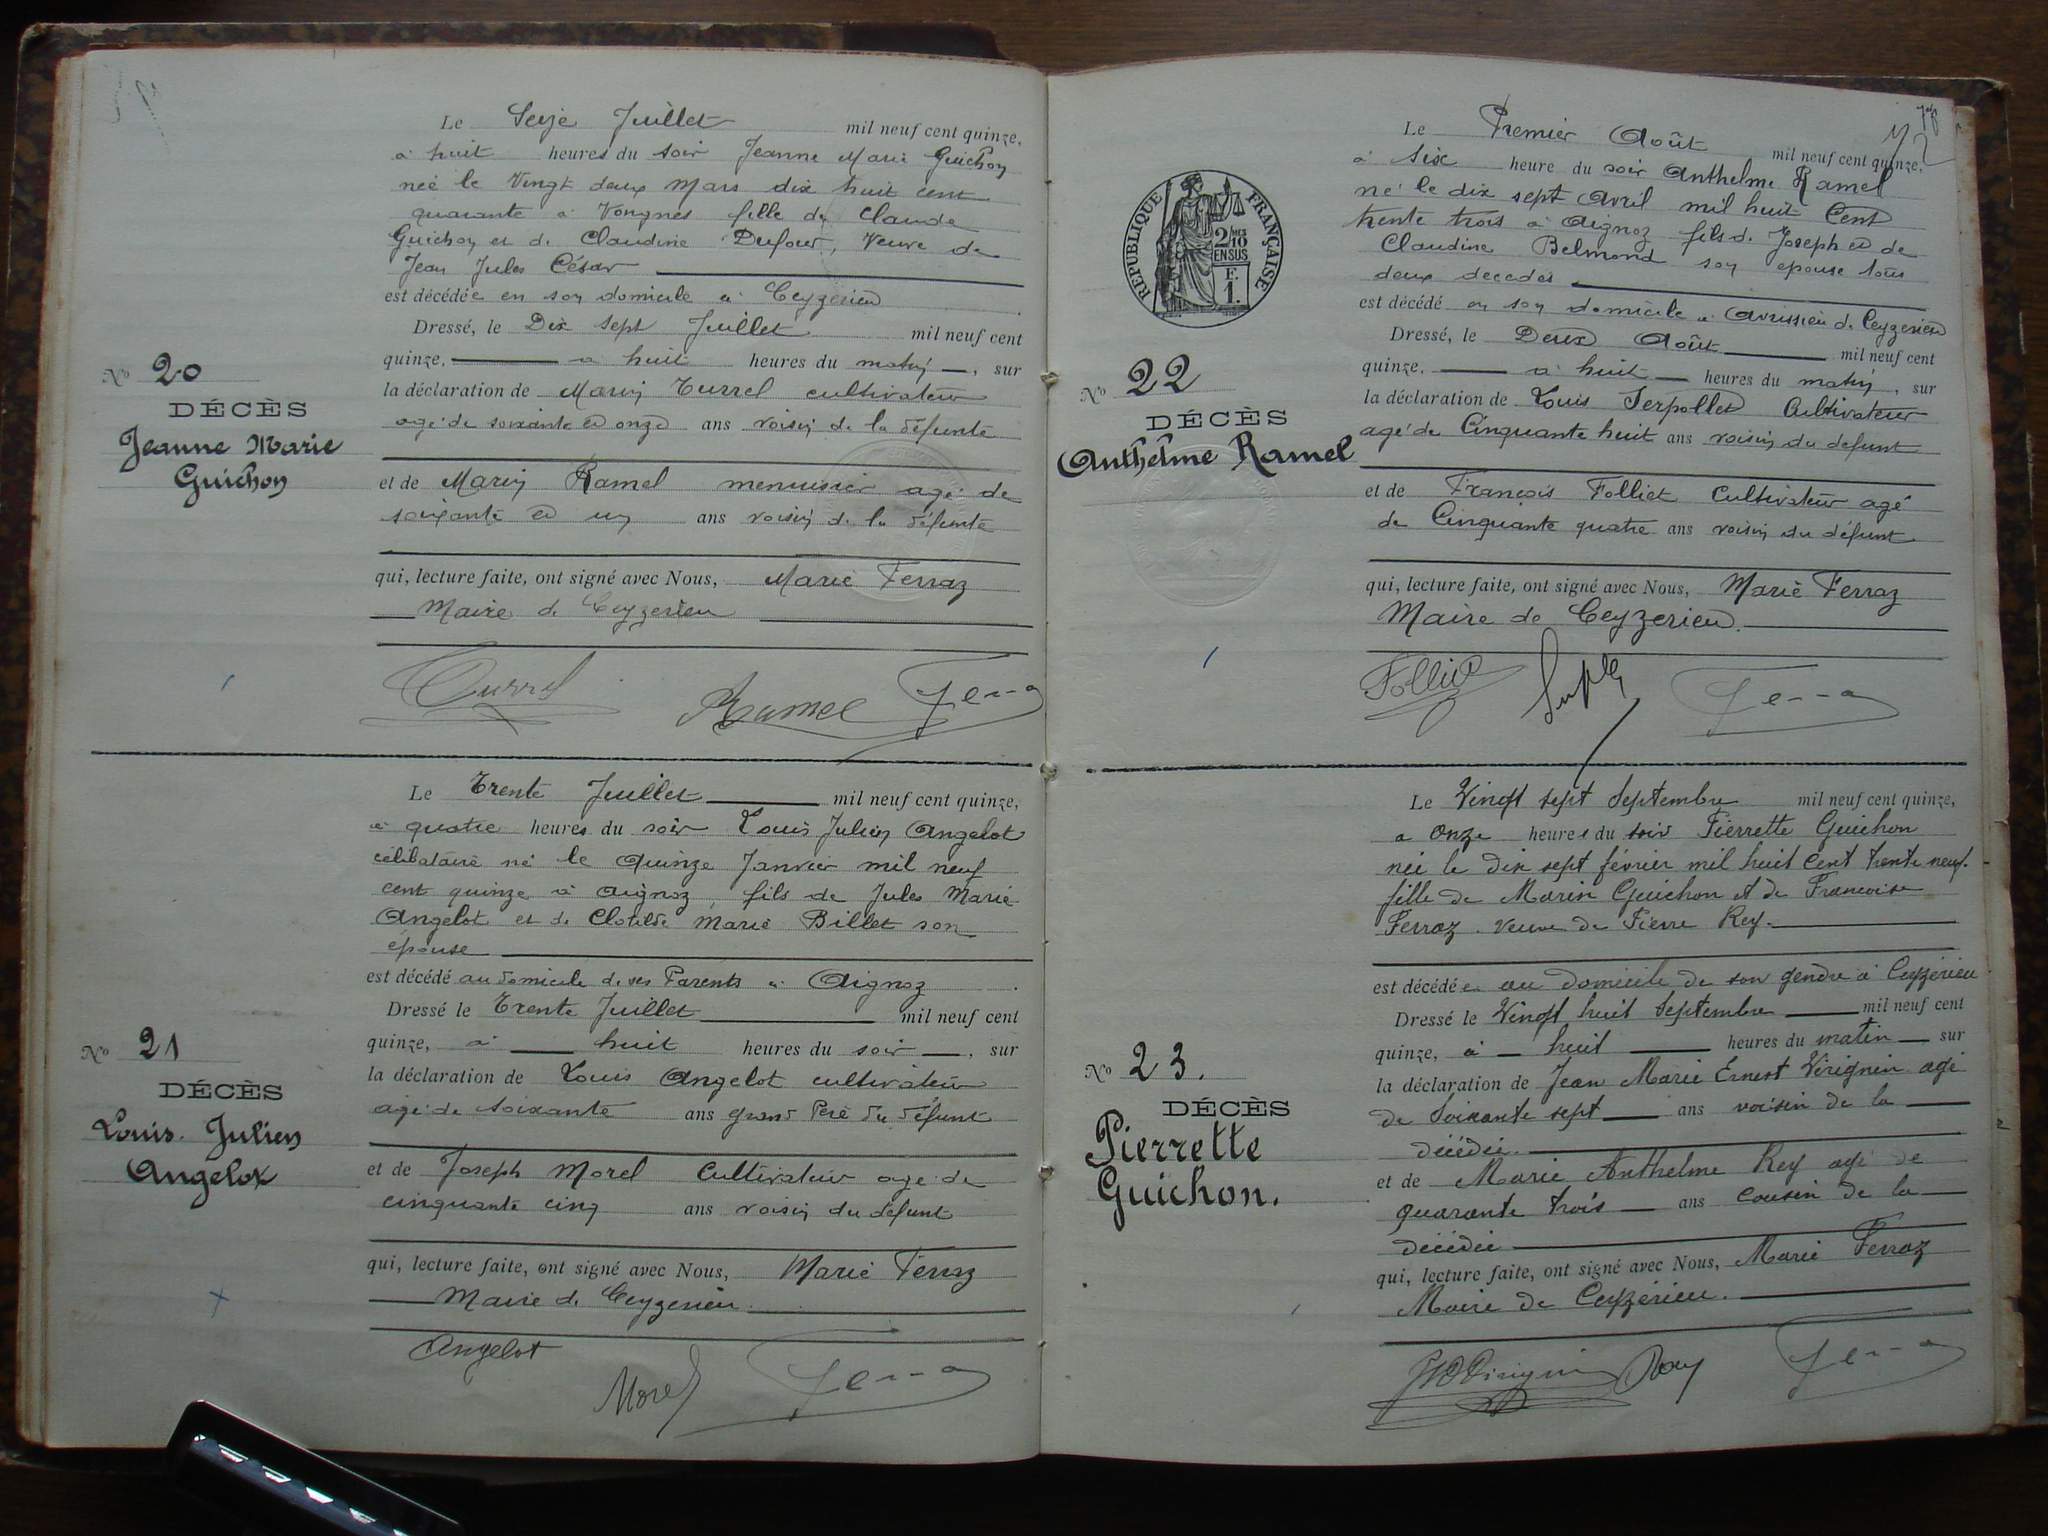 Le Seize Juillet mil neuf cent quinze,
à huit heures du soir Jeanne Marie Guichon
née le Vingt deux Mars dix huit cent
quarante à Vongnes fille de Claude
Guichon et de Claudine Dufour, Veuve de
Jean Jules César
est décédée en son domicile à Ceyzerieu
Dressé, le Dix sept Juillet mil neuf cent
quinze, à huit heures du matin, sur
la déclaration de Marin Turrel cultivateur
agé de soixante et onze ans voisin de la défunte
et de Marin Ramel menuisier agé de
soixante et un ans voisin de la défunte
qui, lecture faite, ont signé avec Nous, Marie Ferraz
Maire de Ceyzerieu
Turrel Ramel Ferra
No 20
DÉCÈS
Jeanne Marie
Guichon
Le Trente Juillet mil neuf cent quinze,
à quatre heures du soir Louis Julien Angelot
célibataire né le Quinze Janvier mil neuf
cent quinze à Aignoz, fils de Jules Marie
Angelot et de Clotilde Marie Billet son
épouse
est décédé au domicile de ses Parents à Aignoz.
Dressé le Trente Juillet mil neuf cent
quinze, à huit heures du soir, sur
la déclaration de Louis Angelot cultivateur
agé de soixante ans grand Père du défunt
et de Joseph Morel Cultivateur agé de
cinquante cinq ans voisin du défunt
qui, lecture faite, ont signé avec Nous, Marie Ferraz
Maire de Ceyzerieu.
Angelot Morel Ferra
No 21
DÉCÈS
Louis. Julien
Angelot
72
RÉPUBLIQUE FRANÇAISE
2/10 EN SUS
F.
1.
Le Premier Août mil neuf cent quinze,
à six heure du soir Anthelme Ramel
né le dix sept Avril mil huit Cent
trente trois à Aignoz fils de Joseph et de
Claudine Belmond son epouse tous
deux decedes
est décédé en son domicile à Avrissieu de Ceyzerieu
Dressé, le Deux Août mil neuf cent
quinze, à huit heures du matin, sur
la déclaration de Louis Serpollet Cultivateur
agé de Cinquante huit ans voisin du defunt
et de François Folliet Cultivateur agé
de Cinquante quatre ans voisin du défunt
qui, lecture faite, ont signé avec Nous, Marie Ferraz
Maire de Ceyzerieu.
Folliet Ferra
No 22
DÉCÈS
Anthelme Ramel
Le Vingt sept Septembre mil neuf cent quinze,
a onze heures du soir Pierrette Guichon
née le dix sept février mil huit cent trente neuf.
fille de Marin Guichon et de Francoise
Ferraz. Veuve de Pierre Rey.
est décédée au domicile de son gendre à Ceyzérieu
Dressé le Vingt huit Septembre mil neuf cent
quinze, à huit heures du matin sur
la déclaration de Jean Marie Ernest Virignin agé
de Soixante sept ans voisin de la
décédée.
et de Marie Anthelme Rey agé de
quarante trois ans Cousin de la
décédée
qui, lecture faite, ont signé avec Nous, Marie Ferraz
Maire de Ceyzérieu.
Virignin Rey Ferra
No 23.
DÉCÈS
Pierrette
Guichon.